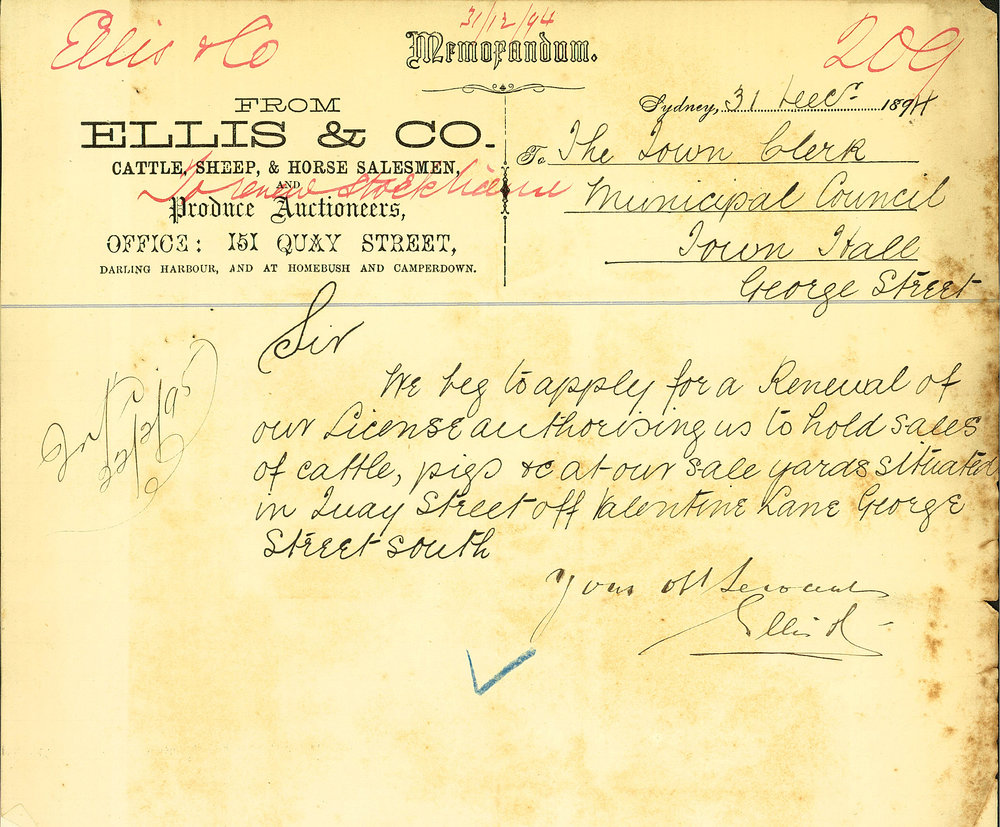 31/12/94
Ellis & Co
209
Memorandum.
FROM
ELLIS & CO.
CATTLE, SHEEP, & HORSE SALESMEN,
AND
Produce Auctioneers,
OFFICE: 151 QUAY STREET,
DARLING HARBOUR, AND AT HOMEBUSH AND CAMPERDOWN.
To renew stock license
Sydney, 31 Decr 1894
To The Town Clerk
Municipal Council
Town Hall
George Street
Sir
We beg to apply for a Renewal of
our License authorising us to hold sales
of cattle, pigs &c at our sale yards situated
in Quay Street off Valentine Lane George
Street south
Your Obt Servants
Ellis & Co
22/2/95